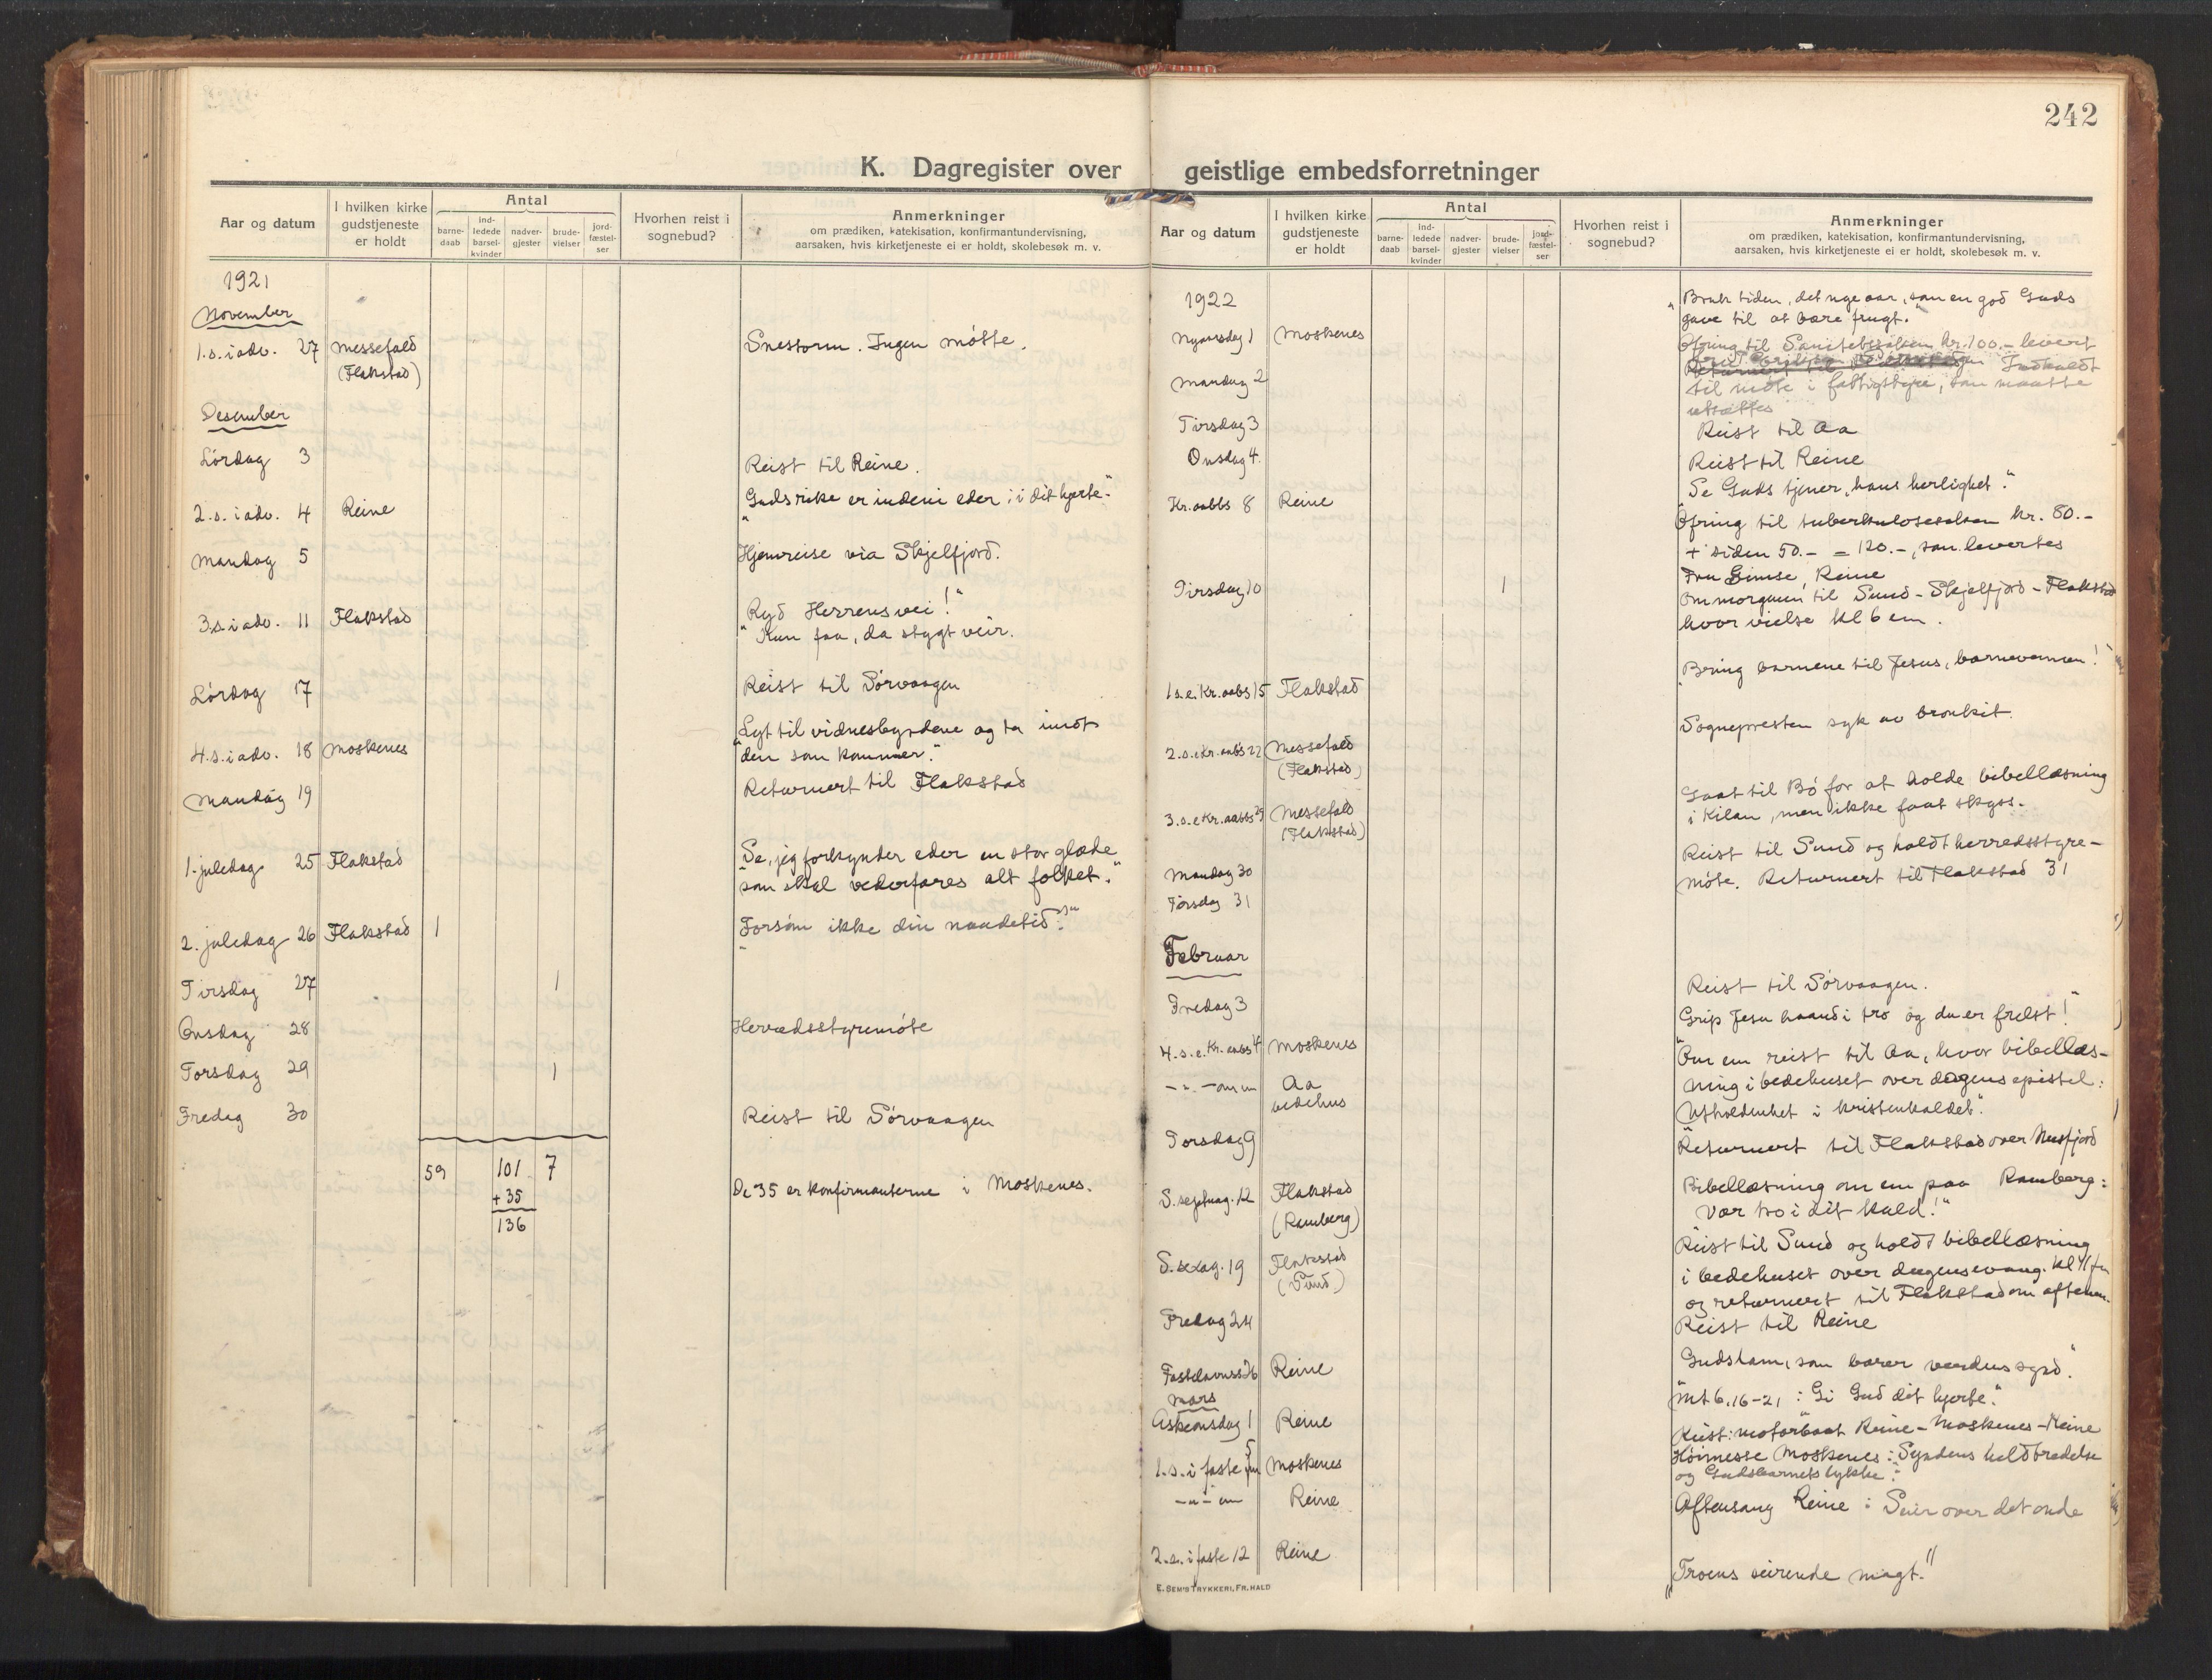 242
K. Dagregister over geistlige embedsforretninger
Aar og datum
I hvilken kirke gudstjeneste er holdt
Antal
barne-daab
ind-ledede barsel-kvinder
nadver-gjester
brude-vielser
jord-fæstel-ser
Hvorhen reist i sognebud?
Anmerkninger
om prædiken, katekisation, konfirmantundervisning,
aarsaken, hvis kirketjeneste ei er holdt, skolebesøk m. v.
1921
November
1.s. i adv. 27 Messefald Snestorm. Ingen møtte.
(Flakstad)
Desember
Lørdag 3 Reist til Reine.
2.s. i adv. 4 Reine "Guds rike er indeni eder : i dit hjerte."
Mandag 5 Hjemreise via Skjelfjord.
3.s. i adv. 11 Flakstad "Ryd Herrens vei!"
Kun faa, da stygt veir.
Lørdag 17 Reist til Sørvaagen
4.s. i adv. 18 Moskenes "Lyt til vidnesbyrdene og ta imot
den som kommer."
Mandag 19 Returnert til Flakstad
1. juledag 25 Flakstad "Se, jeg forkynder eder en stor glæde
som skal vederfares alt folket."
2. juledag 26 Flakstad 1 "Forsøm ikke din naadetid."
Tirsdag 27 1
Onsdag 28 Herredsstyremøte
Torsdag 29 1
Fredag 30 Reist til Sørvaagen
59 101 7
+ 35 De 35 er konfirmanterne i Moskenes.
136
Aar og datum
I hvilken kirke gudstjeneste er holdt
Antal
barne-daab
ind-ledede barsel-kvinder
nadver-gjester
brude-vielser
jord-fæstel-ser
Hvorhen reist i sognebud?
Anmerkninger
om prædiken, katekisation, konfirmantundervisning,
aarsaken, hvis kirketjeneste ei er holdt, skolebesøk m. v.
1922
"Bruk tiden, det nye aar, som en god Guds
gave til at bære frugt."
Nyaarsdag 1 Moskenes
Ofring til Sanitetssaken kr. 100.- levert
Indkaldt
Mandag 2 til møte i fattigstyre, som maatte
utsættes
Tirsdag 3 Reist til Aa
Onsdag 4. Reist til Reine
Kr. aabb 8 Reine "Se Guds tjener, hans herlighet."
Ofring til tuberkulosesaken kr. 80.-
+ siden 50.- = 120.-, som levertes
Fru Gimse, Reine
Tirsdag 10 1 Om morgenen til Sund - Skjelfjord - Flakstad
hvor vielse kl 6 em.
1 s.e. Kr. aabb 15 Flakstad "Bring barnene til Jesus, barnevennen!"
2. s. e Kr. aabb 22 Messefald Sognepresten syk av bronkit.
(Flakstad)
3. s. e Kr. aabb 29 Messefald Gaat til Bø for at holde bibellæsning
(Flakstad) i Kilan, men ikke faat skyss.
Mandag 30 Reist til Sund og holdt herredsstyre-
Tirsdag 31 møte. Returnert til Flakstad 31
Februar
Fredag 3 Reist til Sørvaagen.
4. s. e. Kr. aabb Moskenes "Grip Jesu haand i tro og du er frelst!"
- " - om em Aa Om em reist til Aa, hvor bibellæs-
bedehus ning i bedehuset over dagens epistel:
"Utholdenhet i kristenkaldet".
Torsdag 9 Returnert til Flakstad over Nusfjord
S. septuag. 12 Flakstad Bibellæsning om em paa Ramberg:
(Ramberg) Vær tro i dit kald!"
S. sexag. 19 Flakstad Reist til Sund og holdt bibellæsning
(Sund) i bedehuset over dagens evang. kl 11 fm
og returnert til Flakstad om aftenen.
Fredag 24 Reist til Reine
Fastelavnss 26 Reine "Guds lam, som bærer verdens synd."
Mars
Askeonsdag 1 Reine Mt 6. 16-21 : "Gi Gud dit hjerte".
Reist: motorbaat Reine - Moskenes - Reine
1. s. i faste 5 fm Moskenes Høimesse Moskenes: "Syndens helbredelse
og Gudsbarnets lykke".
- " - em Reine Aftensang Reine : Seier over det onde
2. s. i faste 12 Reine "Troens seirende magt."
E. SEM'S TRYKKERI, FR. HALD